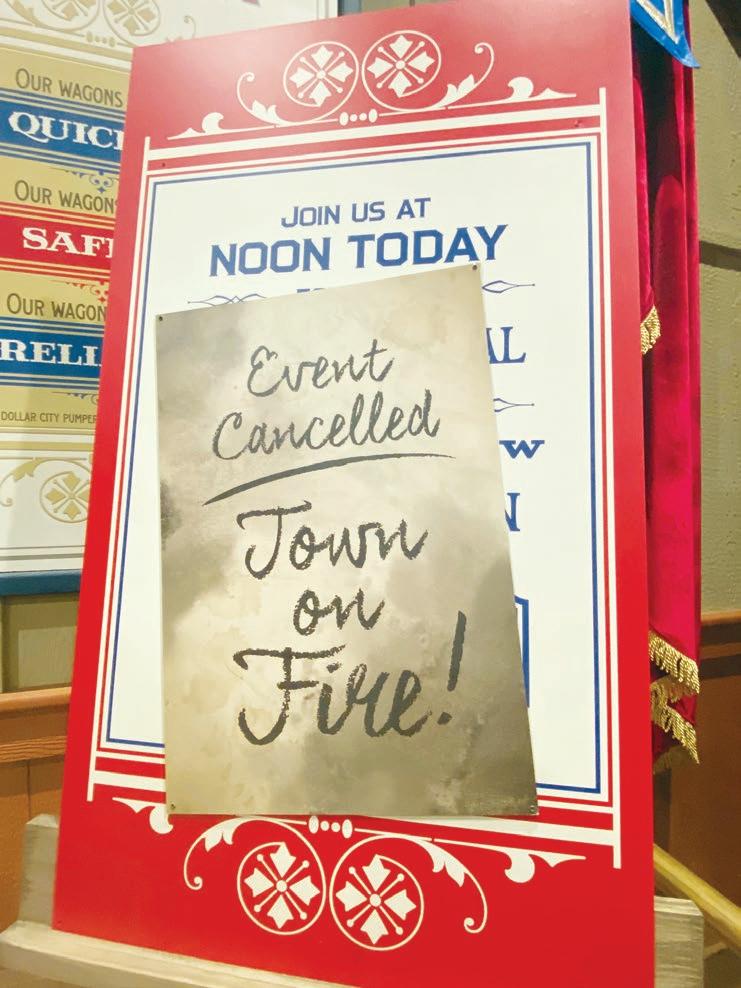 OUR WAGONS
QUIC
OUR WAGON
SAF
OUR WAGON
RELI
DOLLAR CITY PUMPER
JOIN US AT
NOON TODAY
AL
W
N
Event
Cancelled
Town
on
Fire!